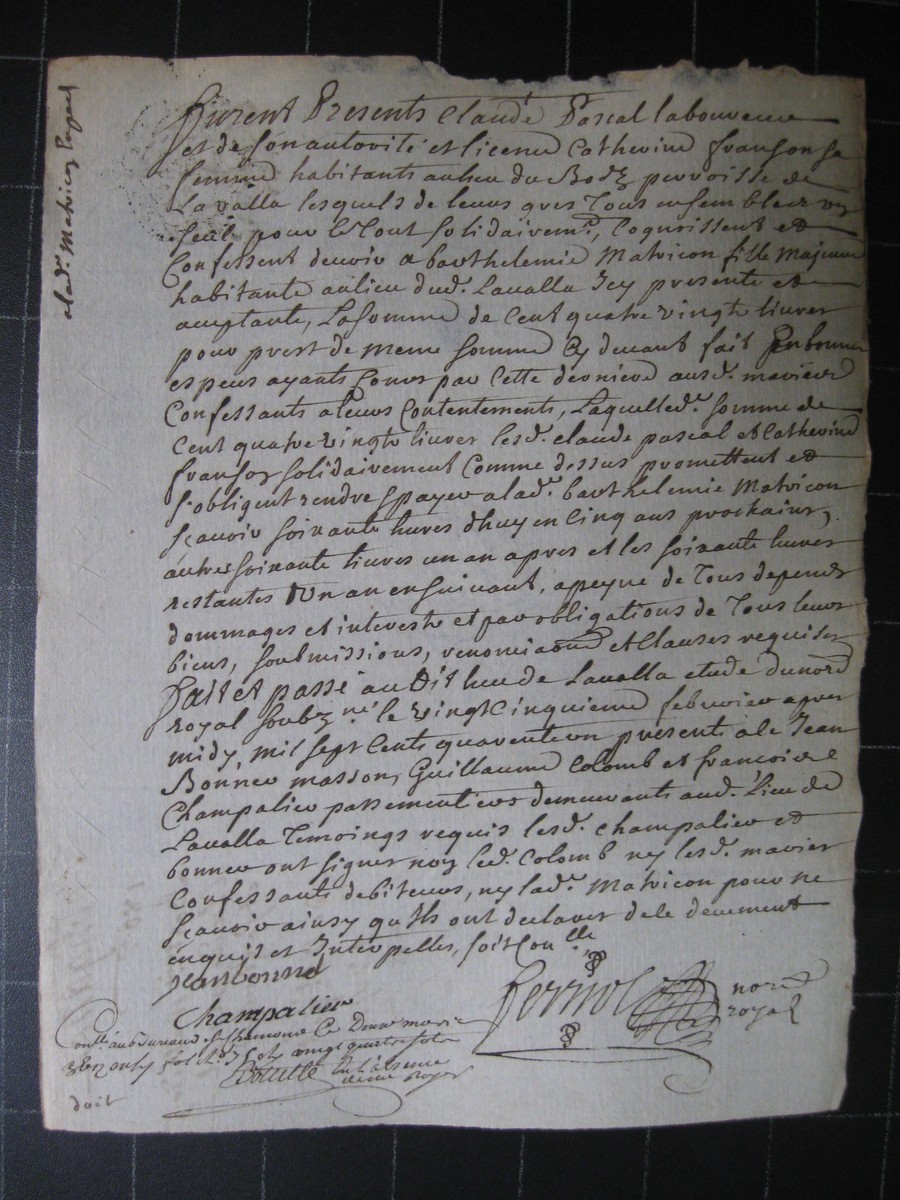 alad.e Matricon payera
furent Presents Claude Pascal laboureur
et de son autorité et licence Catherine franson sa
femme habitants au lieu du parroisse de
La valla lesquels de leurs grés Tous ensemble et un
seul pour le Tout solidairem.t, Cognoissent et
Confessent devoir a barthelemie Matricon fille majeure
habitante au lieu dud. Lavalla Icy presente et
acceptante, La somme de Cent quatre vingts livres
pour prest de meme somme Cy devant fait En bonnes
especes ayants Cours par Cette derniere ausd. mariés
Confessants a leurs Contentements, Laquelle d.e somme de
Cent quatre vingts livres lesd. claude pascal et Catherine
franson solidairement Comme dessus promettent et
s'obligent rendre & payer a lad.e barthelemie Matricon
sçavoir soixante livres d'huy en Cinq ans prochains,
autres soixante livres un an apres et les soixante livres
restantes Un an ensuivant, a peyne de Tous depens
dommages et interests et par obligations de Tous leurs
biens, soubmissions, renonciaons et Clauses requises
fait et passé audit lieu de Lavalla etude du no.re
royal soubz.né le vingt Cinquieme febvrier apres
midy, mil sept Cents quarente un presents a le Jean
Bonner masson, Guillaume Colomb et francois
Champalier passementiers demeurants aud. Lieu de
Lavalla Temoings requis lesd. champalier et
bonner ont signer non led. Colomb ny lesd. mariés
Confessants debiteurs, ny lad.e Matricon pour ne
sçavoir ainsy qu'ils ont declarer de le deuement
enquis et Interpelles, soit Con.lle
Jean bonner
Champalier
ferriol no.re
royal
Con.llé au bureau de St Chamond Ce Douze mars
1741 fol. vingt quatre sols
en l'absence
doit